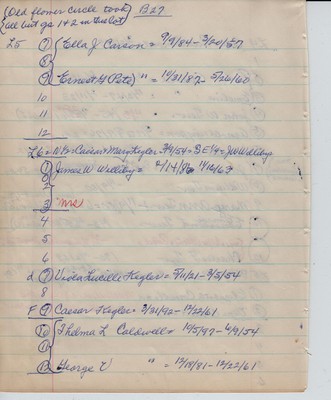 (Old flower circle took) B27
(all but gr 1 & 2 in this lot)
L5 (7) (Ella J Carson = 9/9/84 - 3/20/57
(8)
(9) Ernest H (Pete) " = 10/31/82 - 5/26/60
10
11
12
L6 = Caesar + Mary Kegler 54 = B E 1/4 = JW Welliby
(1) James W Welliby = 11/12/63
(2)
3 Mk
4
5
6
d (7) Viola Lucille Kegler = 5/11/21 - 3/5/54
8
F (9) Caesar Kegler = 3/21/92 - 12/22/61
(10) Thelma L Caldwell = 10/5/97 - 4/9/54
(11)
(12) George V " = 12/19/91 - 12/22/61